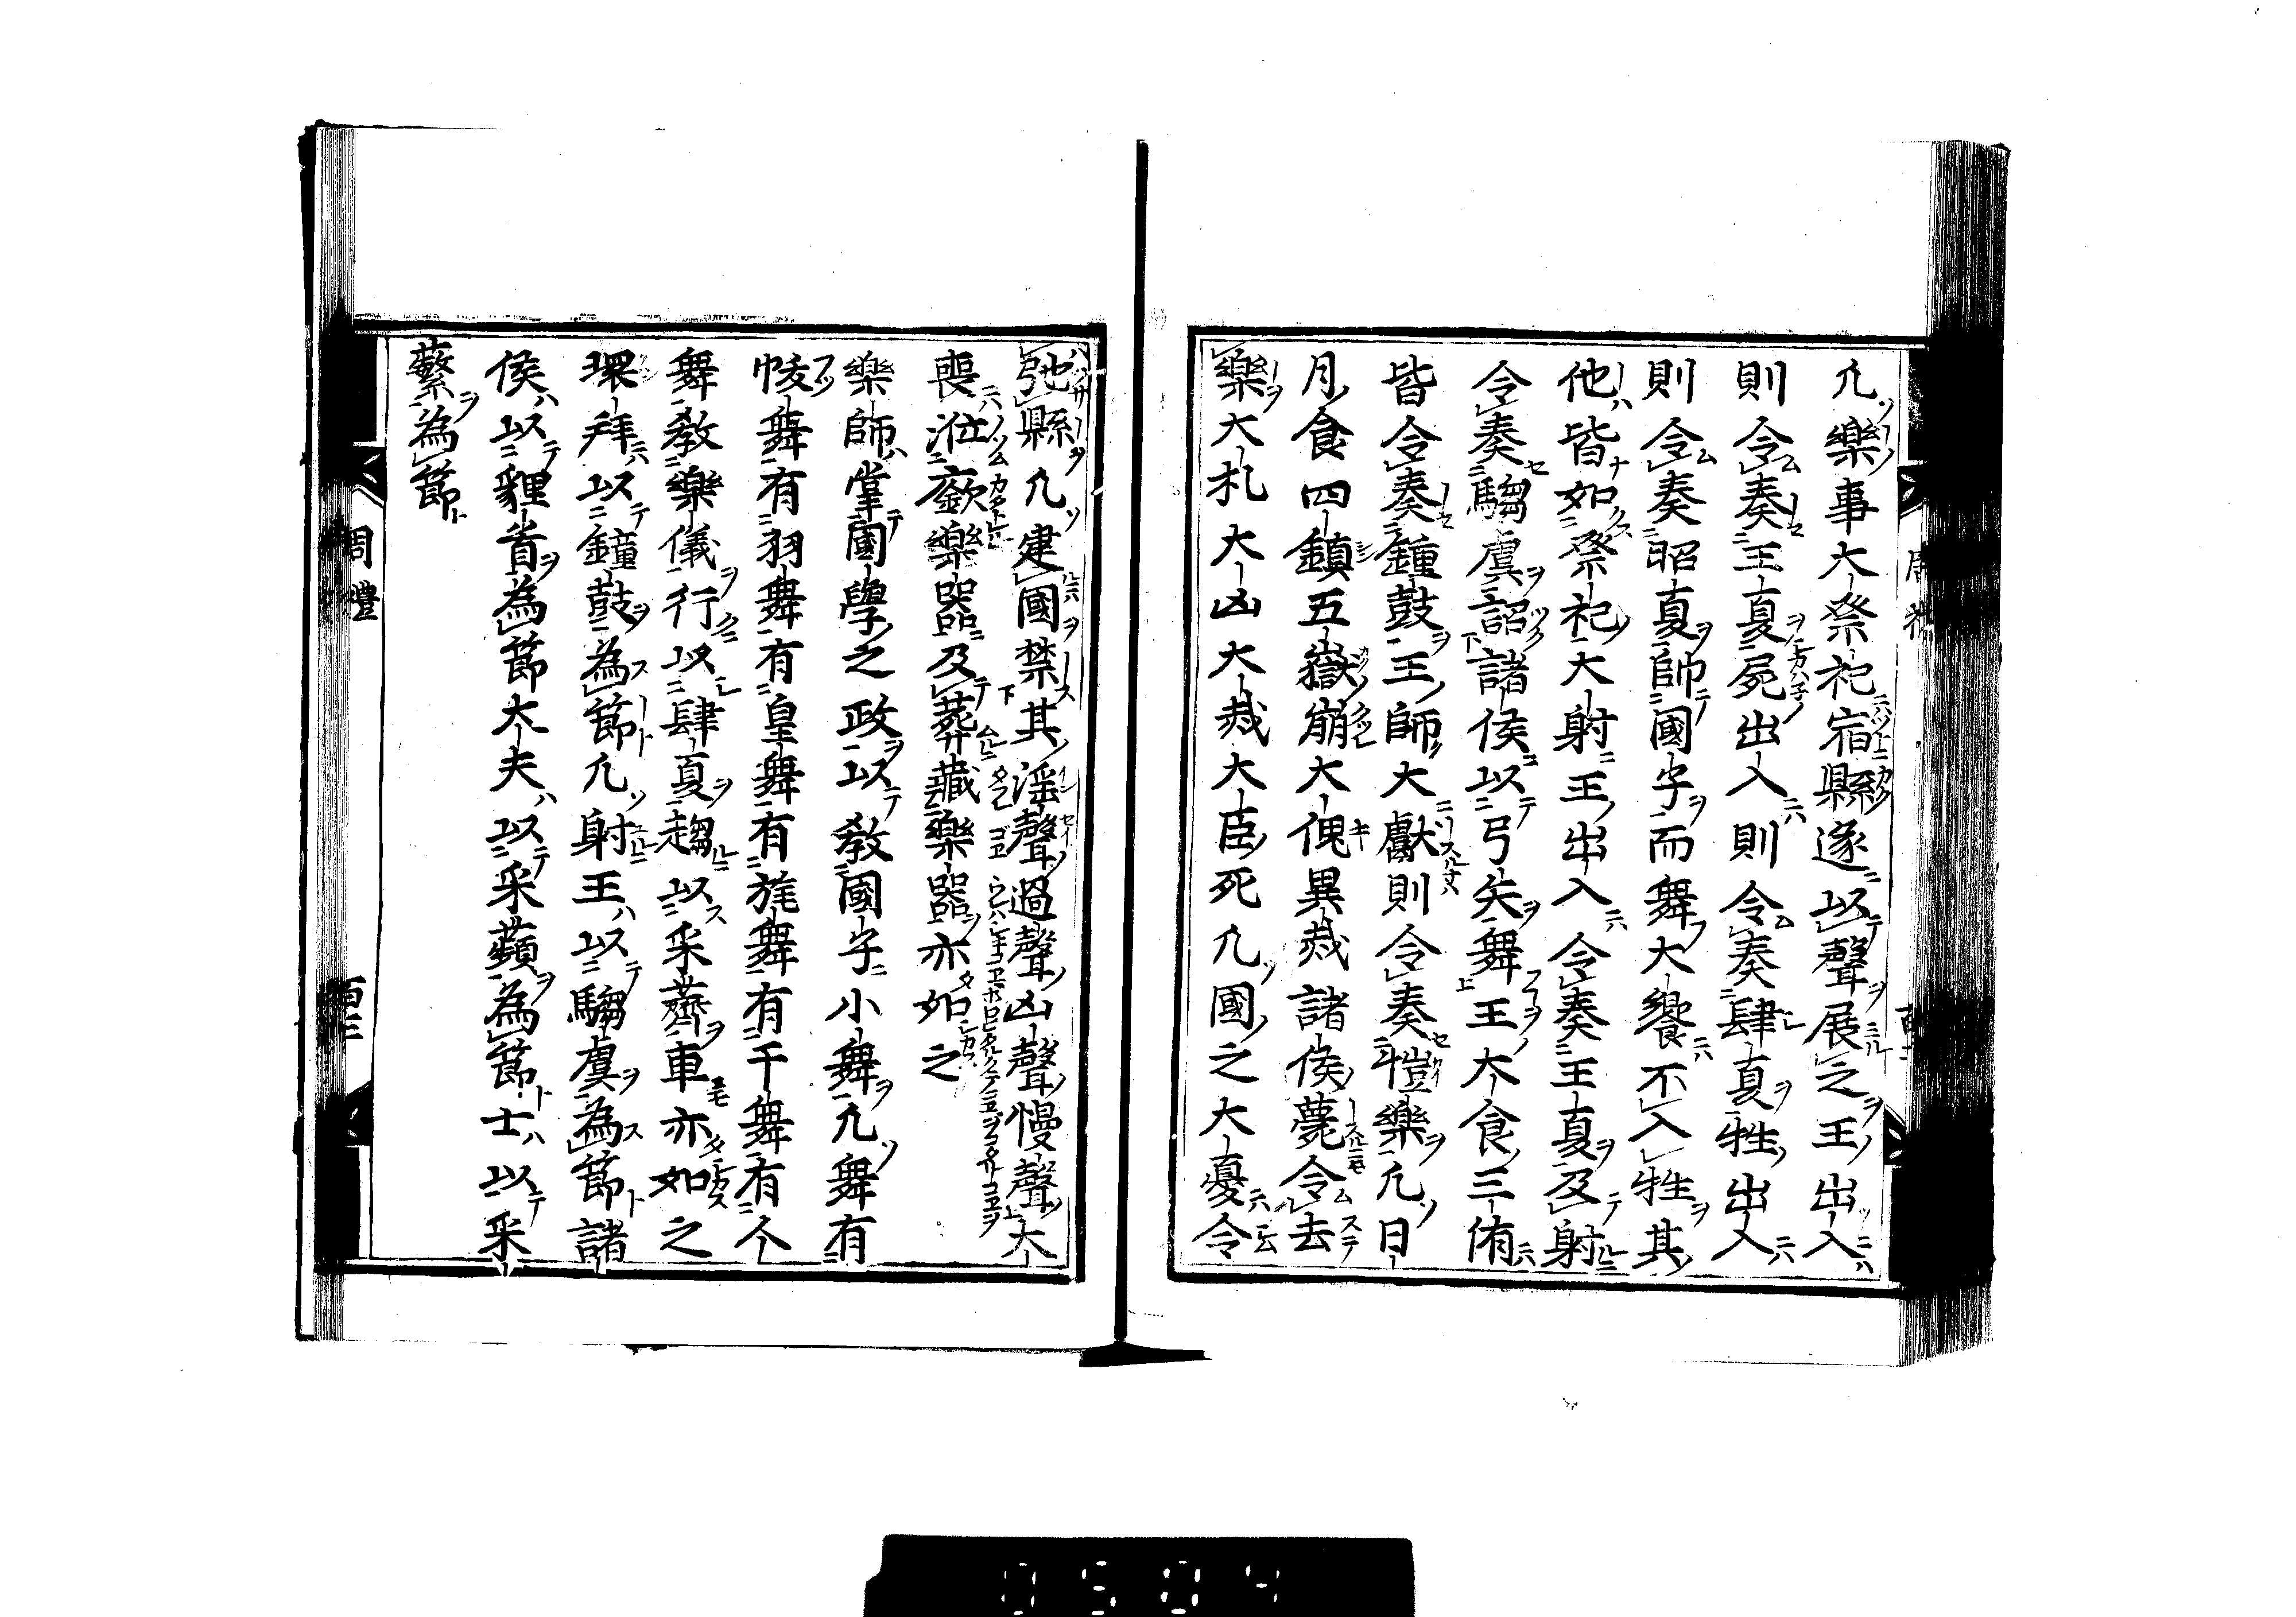 凡樂事大祭祀宿縣遂以聲展之王出入
則令奏王夏尸出入則令奏肆夏牲出入
則令奏昭夏帥國子而舞大饗不入牲其
他皆如祭祀大射王出入令奏王夏及射
令奏騶虞詔諸侯以弓矢舞王大食三侑
皆令奏鐘鼓王師大獻則令奏愷樂凡日
月食四鎮五嶽崩大傀異烖諸侯薨令去
樂大札大凶大烖大臣死凡國之大憂令
弛縣凡建國禁其淫聲過聲凶聲慢聲大
喪涖廞樂器及葬藏樂器亦如之
樂師掌國學之政以教國子小舞凡舞有
帗舞有羽舞有皇舞有旄舞有干舞有人
舞教樂儀行以肆夏趨以采薺車亦如之
環拜以鐘鼓為節凡射王以騶虞為節諸
侯以貍首為節大夫以采蘋為節士以采
蘩為節
周禮
0504